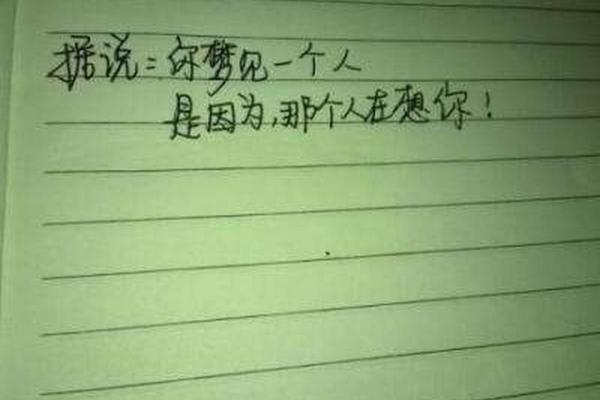 据说：你梦见一个人
是因为,那个人在想你！